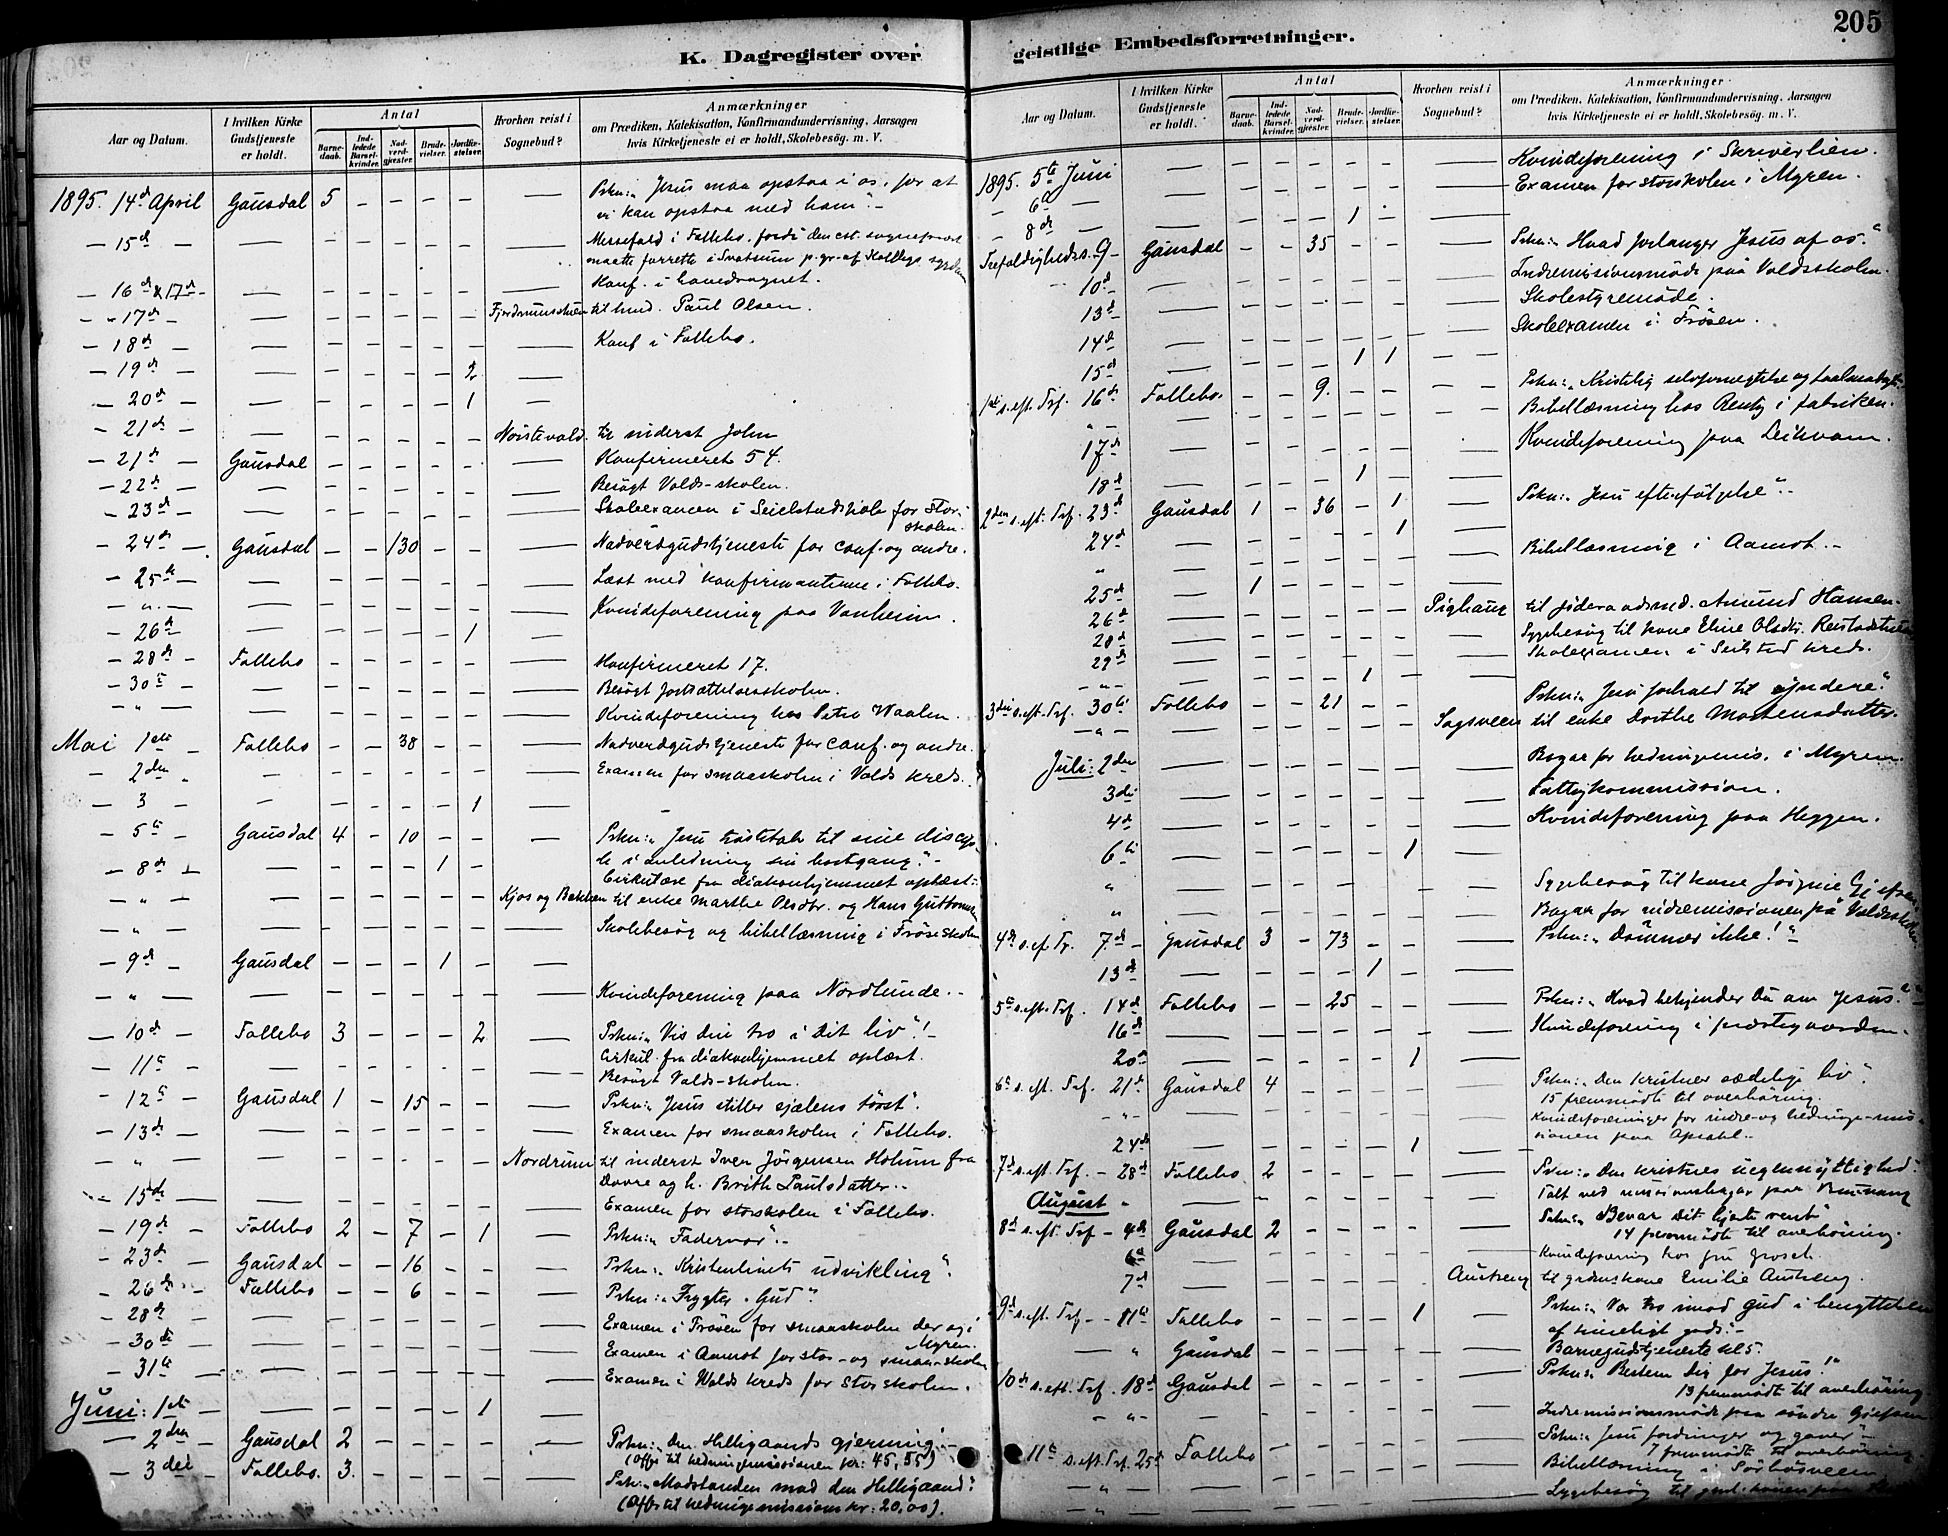 205
K. Dagregister over
geistlige Embedsforretninger.
Aar og Datum.
I hvilken Kirke Gudstjeneste er holdt.
Antal
Barne-daab.
Ind-ledede Barsel-kvinder.
Nad-verd-gjester.
Brude-vielser.
Jordfæ-stelser.
Hvorhen reist i Sognebud?
Anmærkninger
om Prædiken, Katekisation, Konfirmandundervisning, Aarsagen
hvis Kirketjeneste ei er holdt, Skolebesøg. m. V.
1895. 14de April Gausdal 5 – – – – Prkn: „Jesus maa opstaa i os, for at
vi kan opstaa med ham“.
– 15de – Messefald i Follebo, fordi den cst. sogneprest
maatte forrette i Svatsum p. gr. af Kollegs sygdom
– 16de & 17de – Konf. i hovedsognet.
– 17de – til hmd. Paul Olsen.
– 18de – Konf i Follebo.
– 19de – 2
– 20de – 1
– 21de – til inderst John
– 21de – Gausdal Konfirmeret 54.
– 22de – Besøgt Volds-skolen.
– 23de – Skoleexamen i for Stor-
skolen.
– 24de – Gausdal – – 130 – – Nadverdgudstjeneste for conf. og andre.
– 25de – Læst med konfirmanterne i Follebo.
– „ – Kvindeforening paa Vonheim.
– 26de – 1
– 28de – Follebo Konfirmeret 17.
– 30te – Besøgt fortsættelsesskolen.
– „ – Kvindeforening hos Petra Waalen.
Mai 1ste – Follebo – – 38 – – Nadverdgudstjeneste for conf. og andre.
– 2den „ – Examen for smaaskolen i Volds kreds.
– 3 – 1
– 5te – Gausdal 4 – 10 – – Prkn: „Jesu trøstetale til sine discip-
le i anledning sin bortgang“.–
– 8de – 1 – Cirkulære fra diakonhjemmet oplæst.
– „ – Kjos og Bakken til enke Marthe Olsdtr. og Hans Guttormsen
– „ – Skolebesøg og bibellæsning i Frøiseskolen
– 9de – Gausdal – – – 1 –
– „ – Kvindeforening paa Nordlunde.–
– 10de – Follebo 3 – – – 2 Prkn: „Vis din tro i Dit liv“!–
– 11te – Cirkul. fra diakonhjemmet oplæst.
Besøgt Volds-skolen.
– 12te – Gausdal 1 – 15 – – Prkn: „Jesus stiller sjælens tørst“.
– 13de – Examen for smaaskolen i Follebo.
– „ – Nordrum til inderst Iver Jørgensen Holum fra
Dovre og h. Brith Paulsdatter.–
– 15de – Examen for storskolen i Follebo.
– 19de – Follebo 2 – 7 – 1 Prkn: „Fadervor“.–
– 23de – Gausdal – – 16 – – Prkn: „Kristenlivets udvikling“.
– 26de – Follebo – – 6 – – Prkn: „Frygter Gud“.
– 28de – Examen i Frøsen for smaaskolen der og i
Myren.
– 30te – Examen i Aamot for stor- og smaa-skolen
– 31te – Examen i Volds kreds for storskolen.
Juni: 1ste – 1
– 2den – Gausdal 2 Prkn: „Den Helligaands gjerning“.
(Offer til hedningemissionen kr: 45,55)
– 3die – Follebo. 3 Prkn: „Modstanden mod den Helligaand“
(Offer til hedningemissionen kr: 20,00).
Aar og Datum.
I hvilken Kirke Gudstjeneste er holdt.
Antal
Barne-daab.
Ind-ledede Barsel-kvinder.
Nad-verd-gjester.
Brude-vielser.
Jordfæ-stelser.
Hvorhen reist i Sognebud?
Anmærkninger
om Prædiken, Katekisation, Konfirmandundervisning, Aarsagen
hvis Kirketjeneste ei er holdt, Skolebesøg. m. V.
1895. 5te Juni Kvindeforening i Skriverlien.
– 6te – Examen for storskolen i Myren.
– 8de – 1
Trefoldigheds. 9– Gausdal – – 35 – – Prkn: „Hvad forlanger Jesus af os“.
10de Indremissionsmøde paa Voldsskolen.
13de Skolestyremøde.
14de Skoleexamen i Frøsen.
15de 1 1
1ste s. eft. Tref. 16de Follebo. – – 9. Prkn: „Kristelig selvfornegtelse og taalmodighed
„ Bibellæsning hos Rentz i fabriken.
17de Kvindeforening paa Leikvam.
18de 1
2den s. eft. Tref. 23de Gausdal 1 – 36 – 1 Prkn: „Jesu efterfølgelse“.–
24de 1
„ Bibellæsning i Aamot.–
25de 1
26de til føderaadsmd. Amund Hansen.
28de Sygebesøg til kone Eline Olsdtr.
29de Skoleexamen i Seilstad kreds.
– „ – 1
3die s. eft. Tref. 30te Follebo – – 21 – – Prkn: „Jesu forhold til syndere“.
– „ – Sagsveen til enke Dorthe Mortensdatter.
Juli: 2den Bazar for hedningemis. i Myren
3die Fattigkommission.
4de Kvindeforening paa Heggen.
6te 1
„ Sygebesøg til kone Jørgine Gjefsen
„ Bazar for indremissionen på Voldsskolen
4de s. ef. Tr. 7de – Gausdal 3 – 73 – – Prkn: „Dømmer ikke!“
13de 1
5te s. eft. Tref. 14de Follebo – – 25 – – Prkn: „Hvad bekjender Du om Jesus“.
16de Kvindeforening i præstegaarden.
20de 1
6te s. eft. Tref. 21de Gausdal 4 Prkn: „Den kristnes sædelige liv“.
15 fremmødte til overhøring.
– „ – Kvindeforeninger for indre- og hedninge-mis-
sionen paa Opsahl.–
24de 1
7de s. eft. Tref. – 28de Follebo 2 Prkn: „Den kristnes uegennyttighed“.
August „ Talt ved missionsbazar paa
8de s. eft. Tref. – 4de Gausdal 2 Prkn: „Bevar Dit hjerte rent“
14 fremmødte til overhøring.
6te Kvindeforening hos fru Grosch.
7de Austreng til grdmskone Emilie Austreng.
9de s. eft. Tref. – 11te Follebo 1 Prkn: „Vor tro imod Gud i benyttelsen
af timeligt gods“.–
– „ Gausdal Barnegudstjeneste kl 5.
10de s. eft. Tref. 18de Gausdal Prkn: „Bestem Dig for Jesus!“
13 fremmødte til overhøring
– „ – Indremissionsmøde paa søndre Gjefsen
11te s. eft. Tref. 25de Follebo Prkn: „Jesu fordringer og gaver“–
7 fremmødte til overhøring
– „ Bibellæsning i
– „ Sygebesøg til